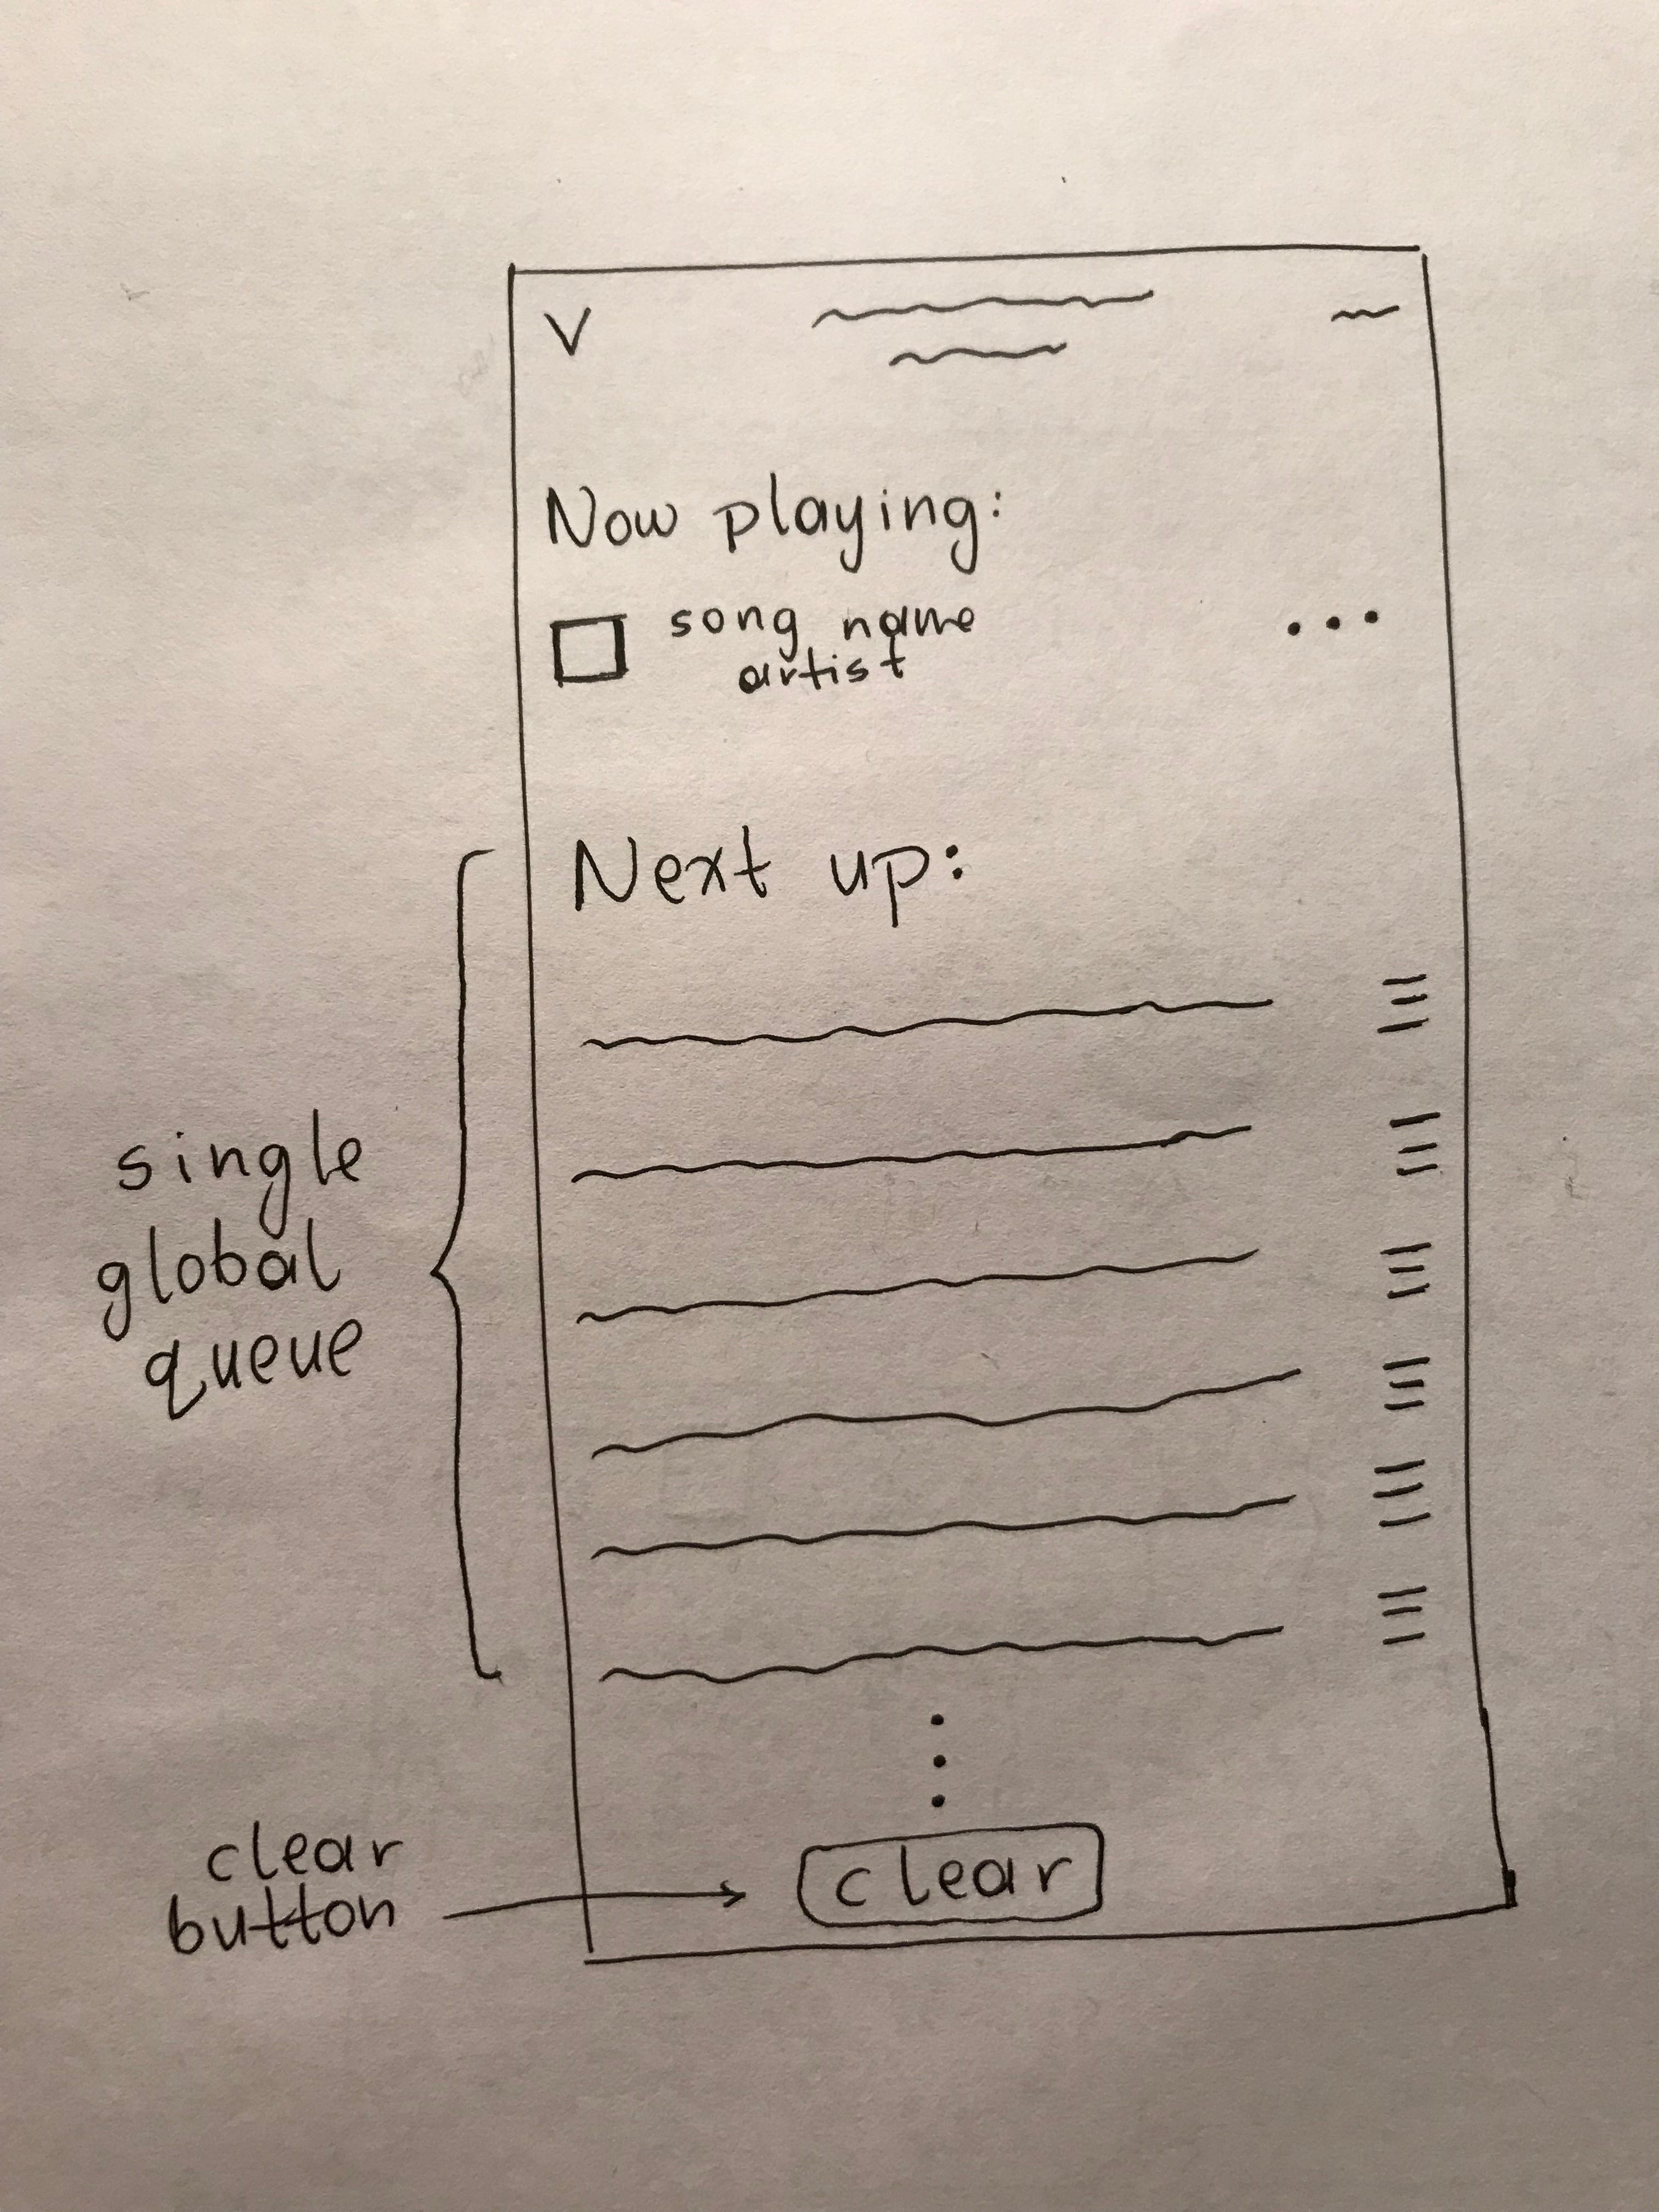 Now playing:
song name
artist
Next up:
single
global
queue
clear
button
clear